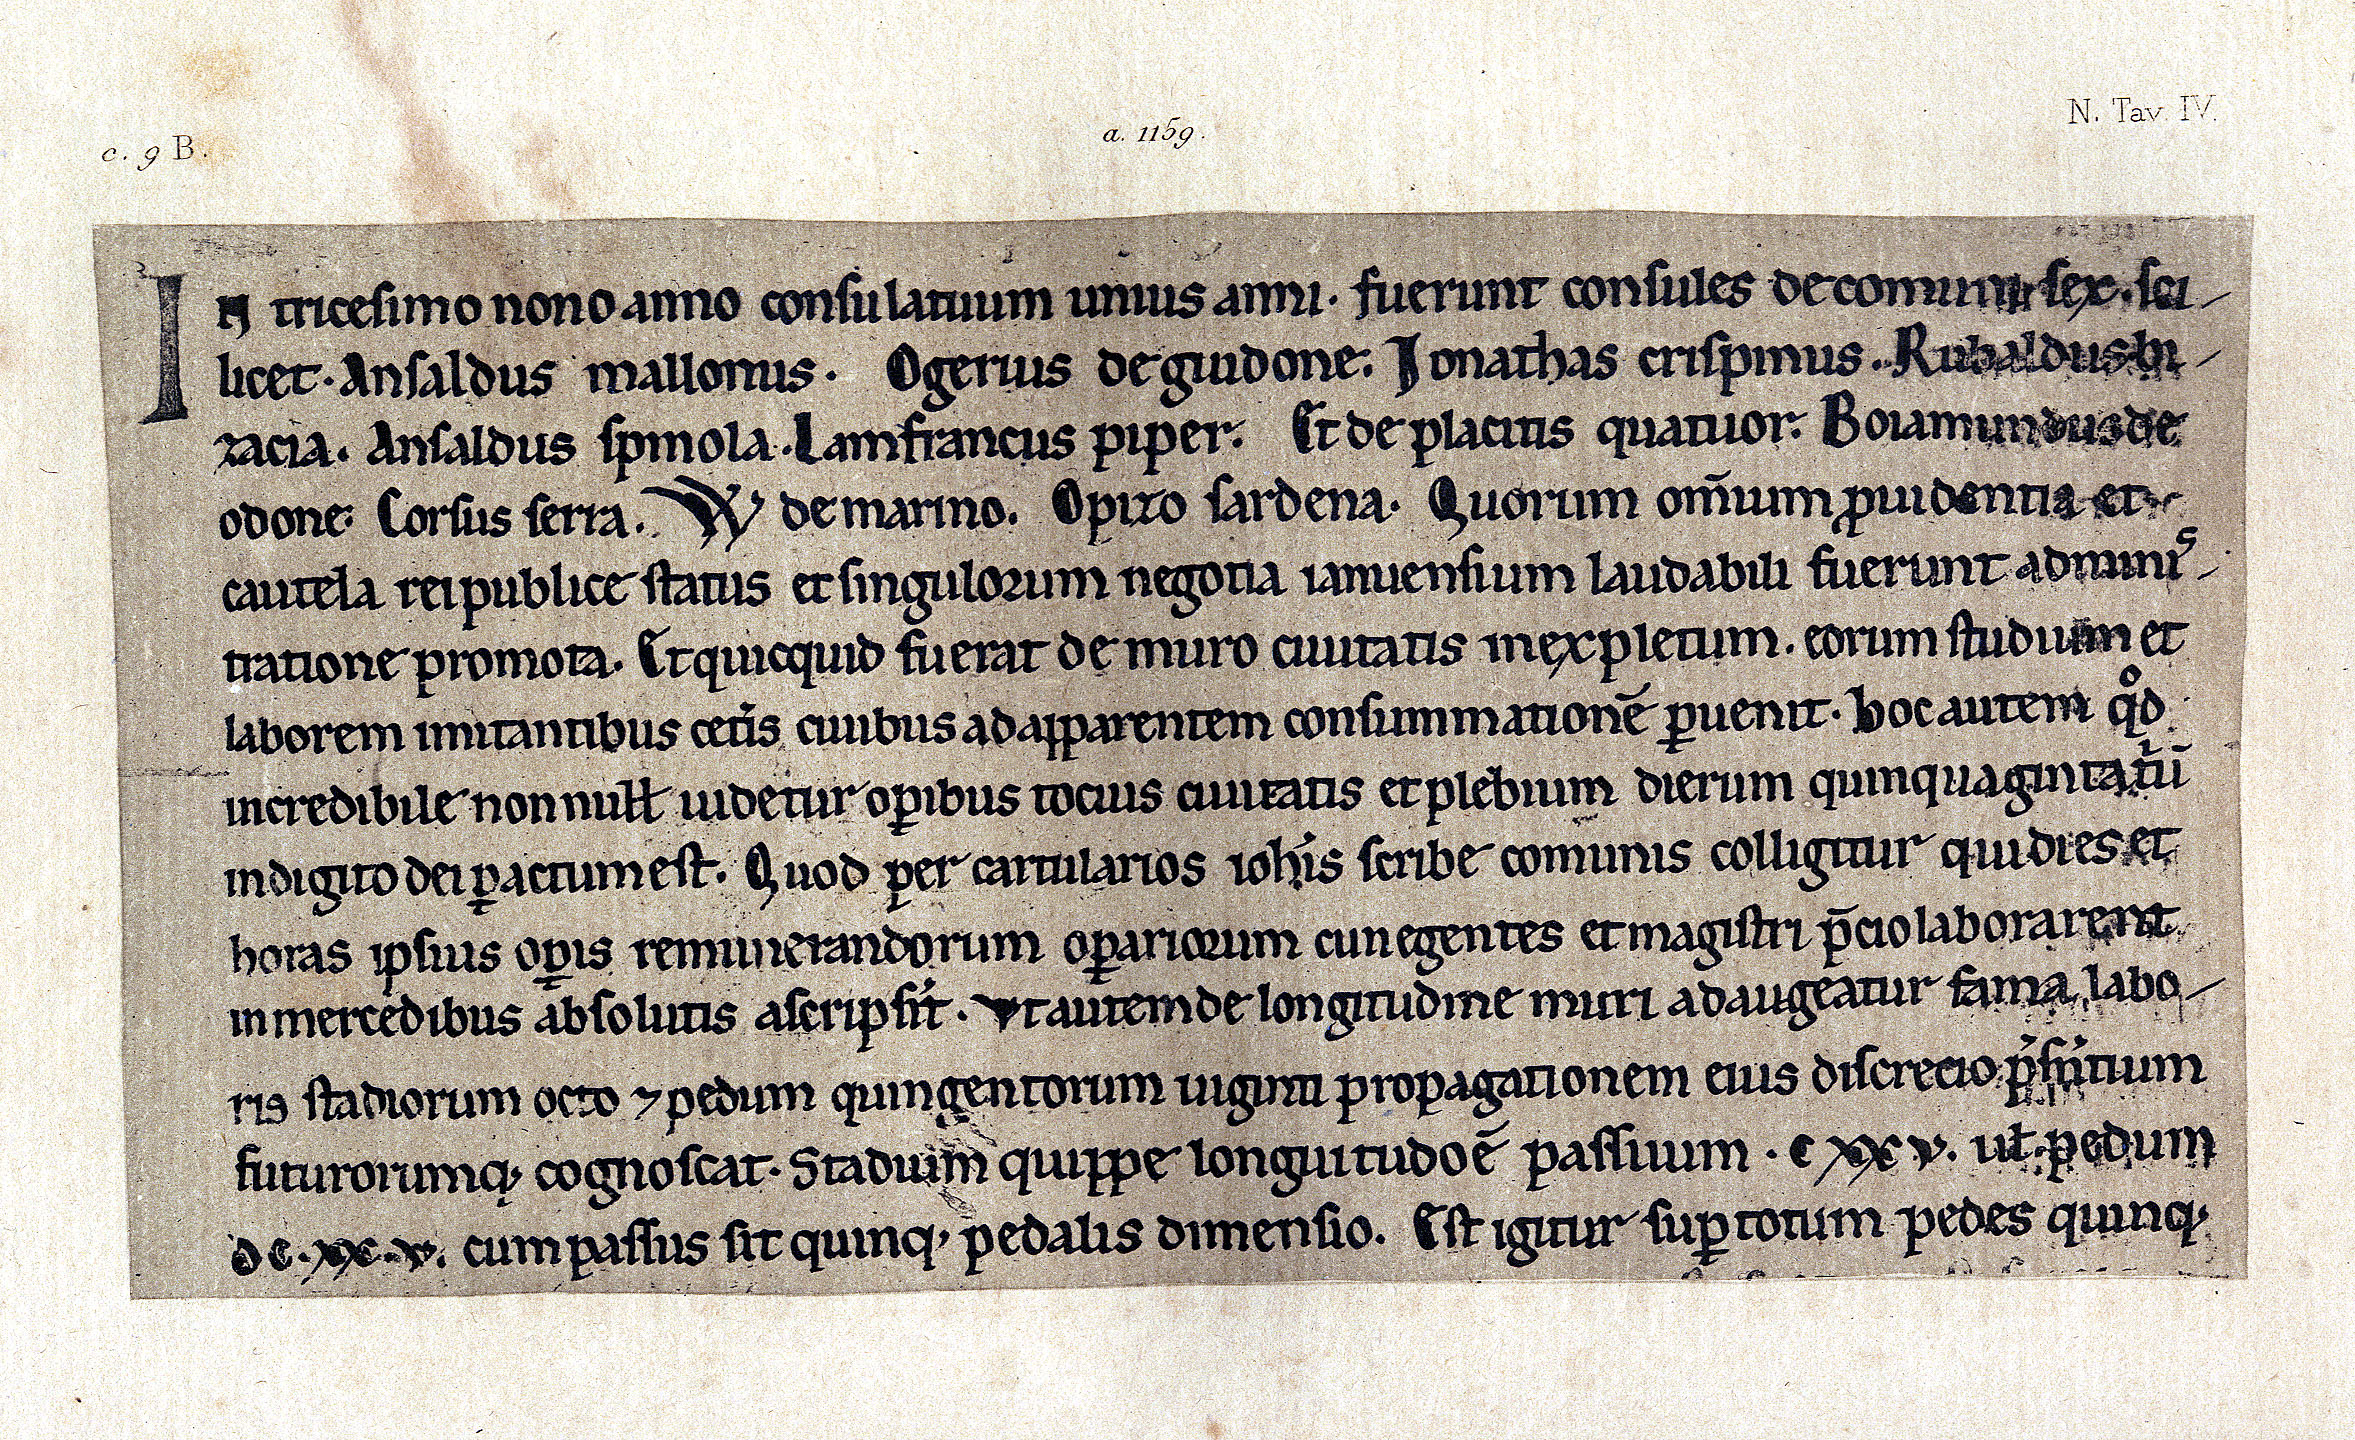 c. 9 B.
a. 1159.
N. Tav. IV.
In tricesimo nono anno consulatuum unius anni. fuerunt consules de comuni sex. sci-
licet. Ansaldus mallonus. Ogerius de guidone. Ionathas crispinus. Rubaldus bi-
zacia. Ansaldus spinola. Lamfrancus piper. Et de placitis quatuor. Boiamundus de
odone. Corsus serra. W de marino. Opizo sardena. Quorum om̄ium ꝓuidentia et
cautela rei publice status et singulorum negotia ianuensium laudabili fuerunt adminiˢ-
tratione promota. Et quicquid fuerat de muro ciuitatis inexpletum. eorum studium et
laborem imitantibus cet̉is ciuibus ad apparentem consummationē ꝑuenit. hoc autem qͦd
incredibile non null̵ uidetur oꝑibus tocius ciuitatis et plebium dierum quinquaginta tͥū
in digito dei ꝑactum est. Quod per cartularios ioh̉is scribe comunis colligitur qui dies et
horas ipsius oꝑis remunerandorum oꝑariorum cunegentes et magistri p̄cio laborarent
in mercedibus absolutis ascripsit̉. ut autem de longitudine muri adaugeatur fama labo-
ris stadiorum octo ⁊ pedum quingentorum uiginti propagationem eius discrecio p̉sn̉tium
futurorumq; cognoscat. Stadium quippe longuitudoē passuum. C XX V. ul̵. pedum
DC. XX. V. cum passus sit quinq; pedalis dimensio. Est igitur suꝑ totum pedes quinq;